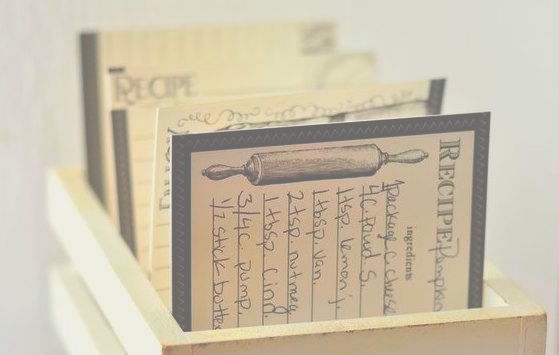 RECIPE
RECIPE Pumpkin
ingredients
1 package c. cheese
4 c. powd S.
1 tsp. lemon j.
1 tbsp. van.
2 tsp. nutmeg
1 tbsp cind.
3/4 c. pump.
1/2 stick butter